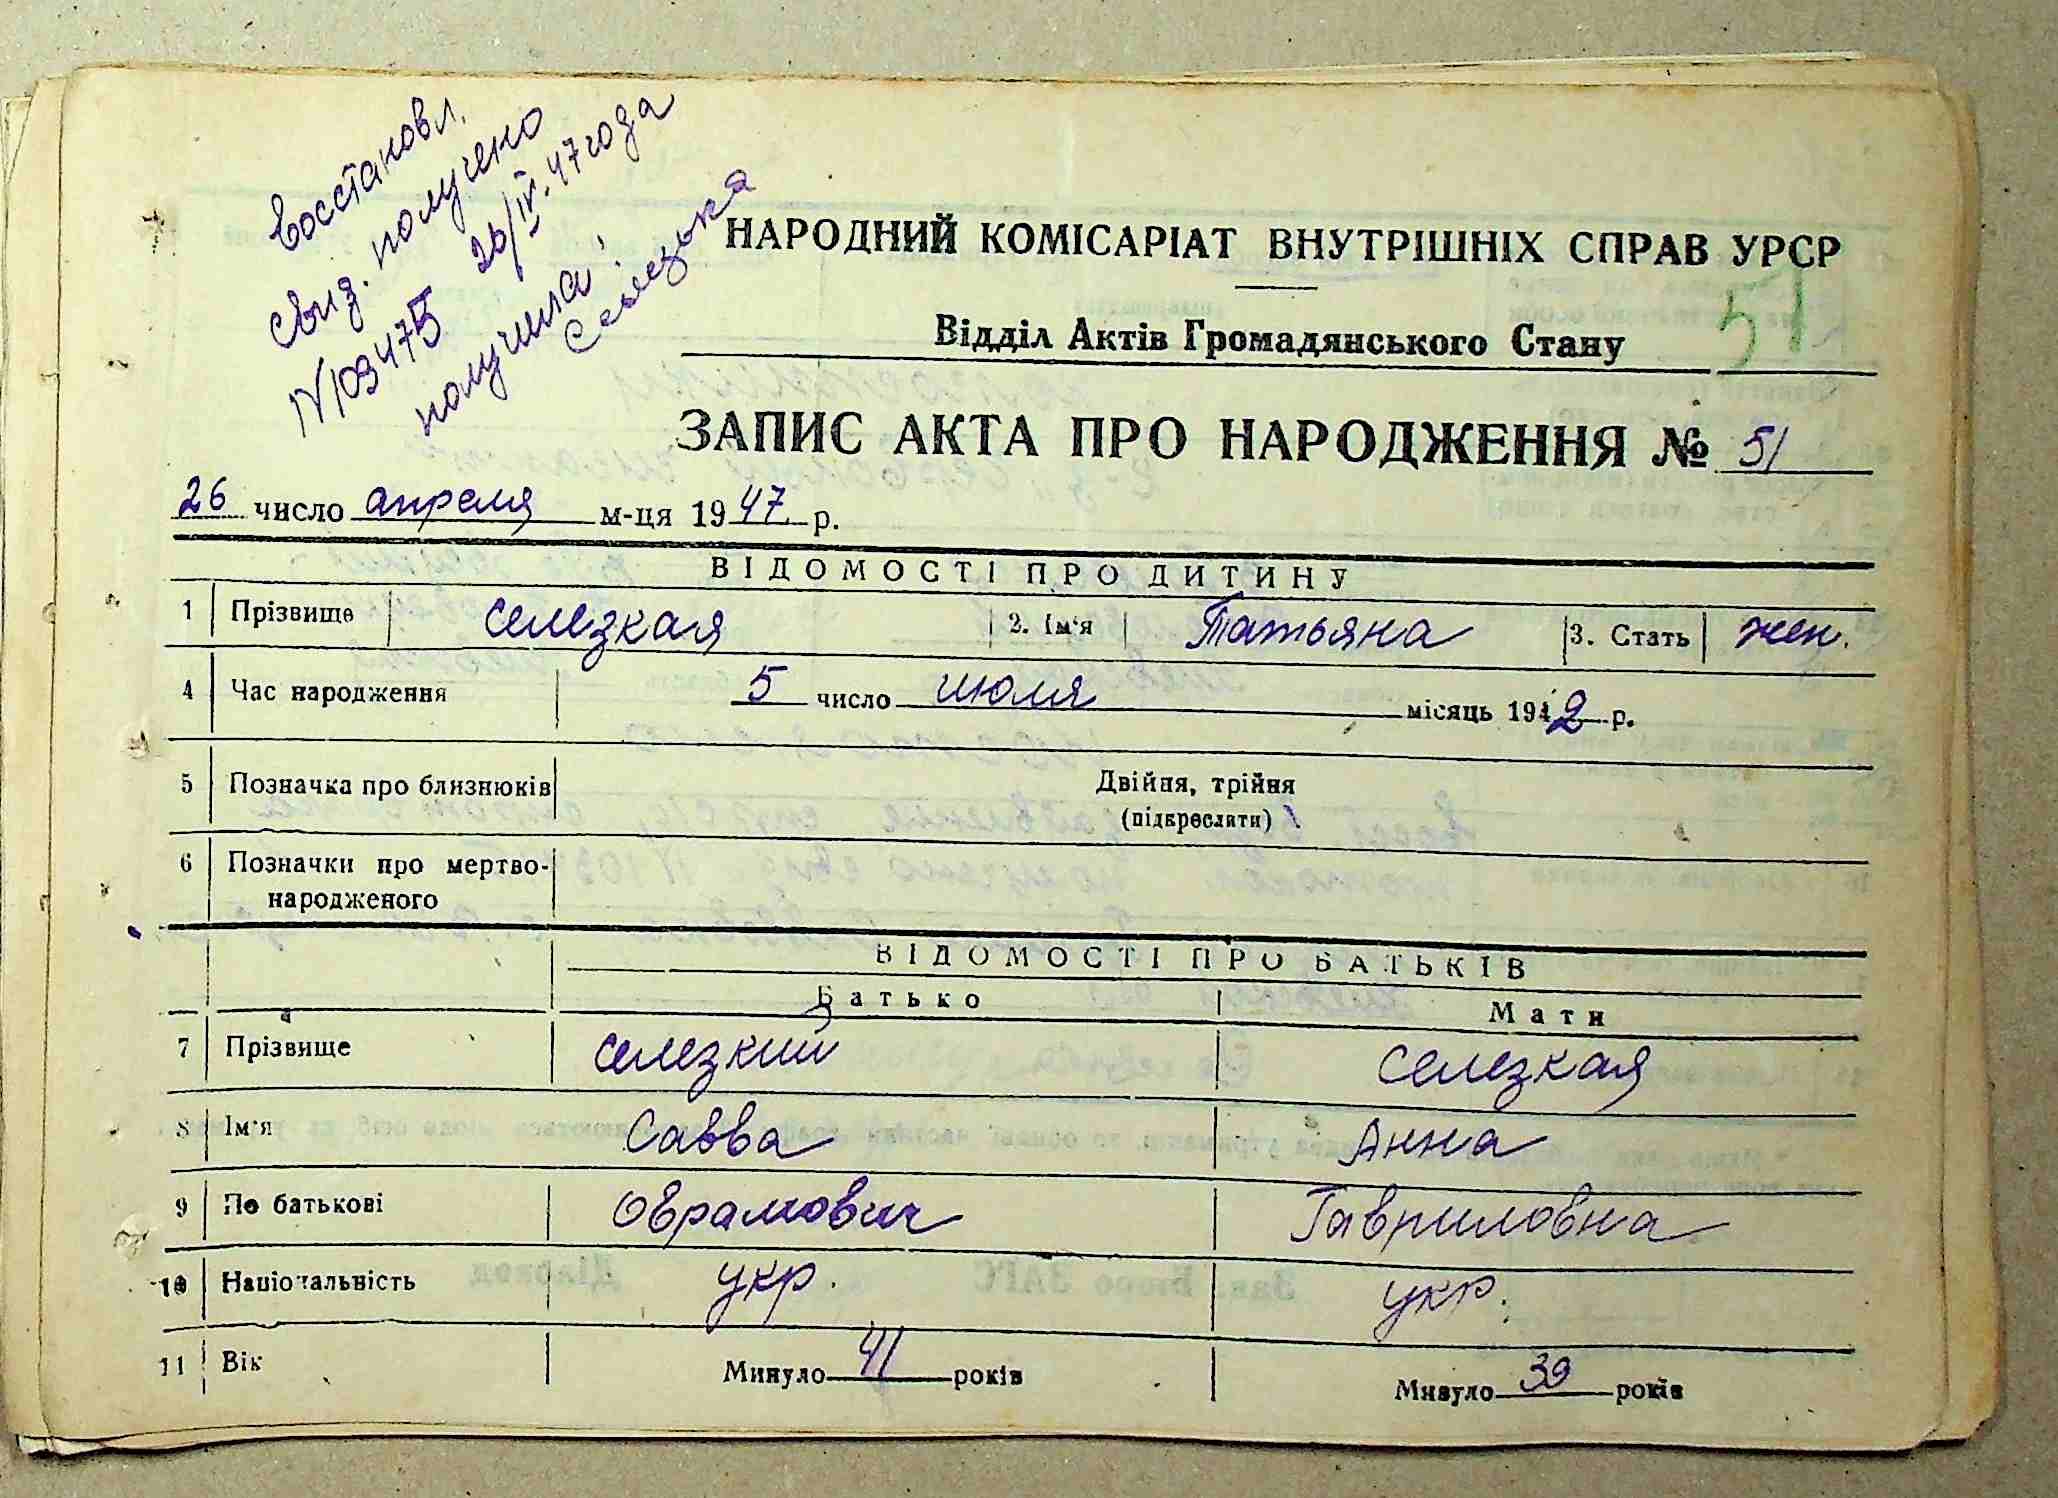 Восстановл.
свид. получено
N 103475 26/IV.47 года
получила:
Селезька
НАРОДНИЙ КОМІСАРІАТ ВНУТРІШНІХ СПРАВ УРСР
Відділ Актів Громадянського Стану 51
ЗАПИС АКТА ПРО НАРОДЖЕННЯ № 51
26 число апреля м-ця 1947 р.
ВІДОМОСТІ ПРО ДИТИНУ
1 Прізвище Селезкая 2. Ім'я Татьяна 3. Стать жен.
4 Час народження 5 число июля місяць 1942 р.
5 Позначка про близнюків Двійня, трійня
(підкреслити)
6 Позначки про мертво-
народженого
ВІДОМОСТІ ПРО БАТЬКІВ
Батько Мати
7 Прізвище Селезкий Селезкая
8 Ім'я Савва Анна
9 По батькові Оврамович Гавриловна
10 Національність укр. укр.
11 Вік Минуло 41 років Минуло 39 років